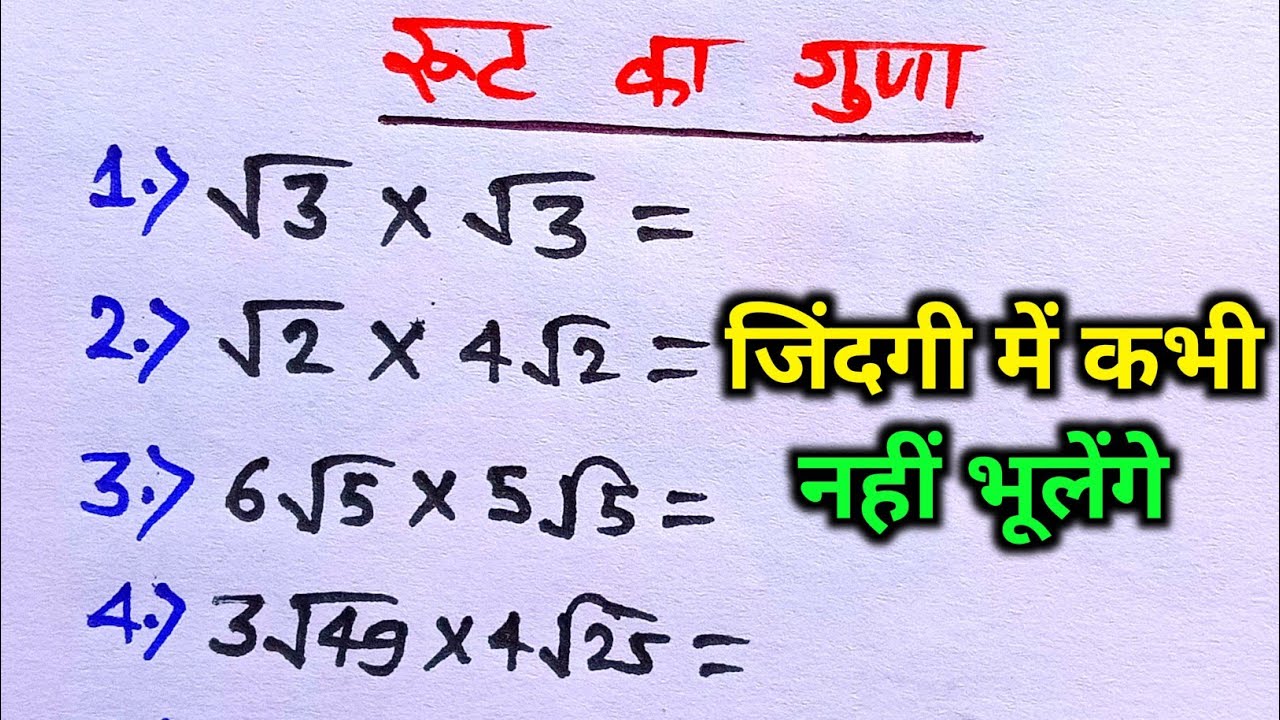 रूट का गुणा
1.) √3 × √3 =
2.) √2 × 4√2 =
3.) 6√5 × 5√5 =
4.) 3√49 × 4√25 =
जिंदगी में कभी
नहीं भूलेंगे